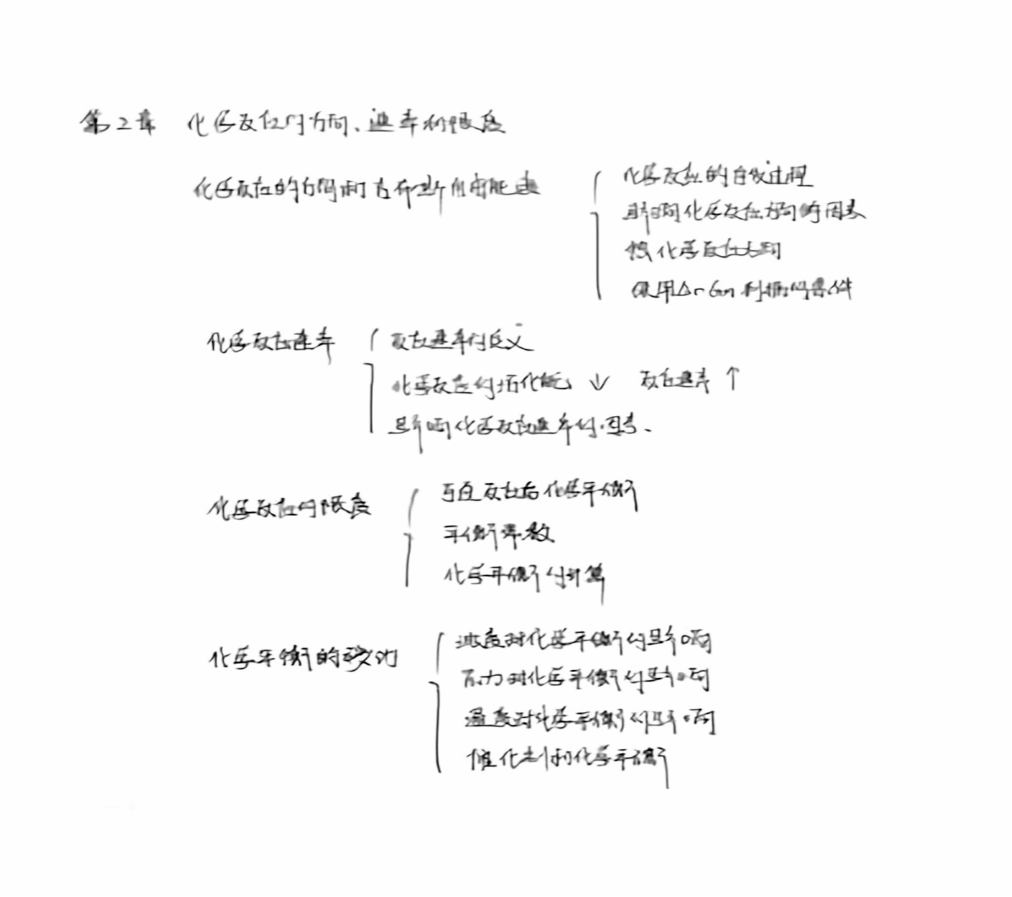 第2章 化学反应的方向、速率和限度
化学反应的方向和吉布斯自由能变
化学反应的自发过程
影响化学反应方向的因素
化学反应
使用ΔrGm判据的条件
化学反应速率
反应速率的定义
化学反应的活化能 ↓ 反应速率 ↑
影响化学反应速率的因素、
化学反应的限度
可逆反应与化学平衡
平衡常数
化学平衡的计算
化学平衡的移动
浓度对化学平衡的影响
压力对化学平衡的影响
温度对化学平衡的影响
催化剂和化学平衡